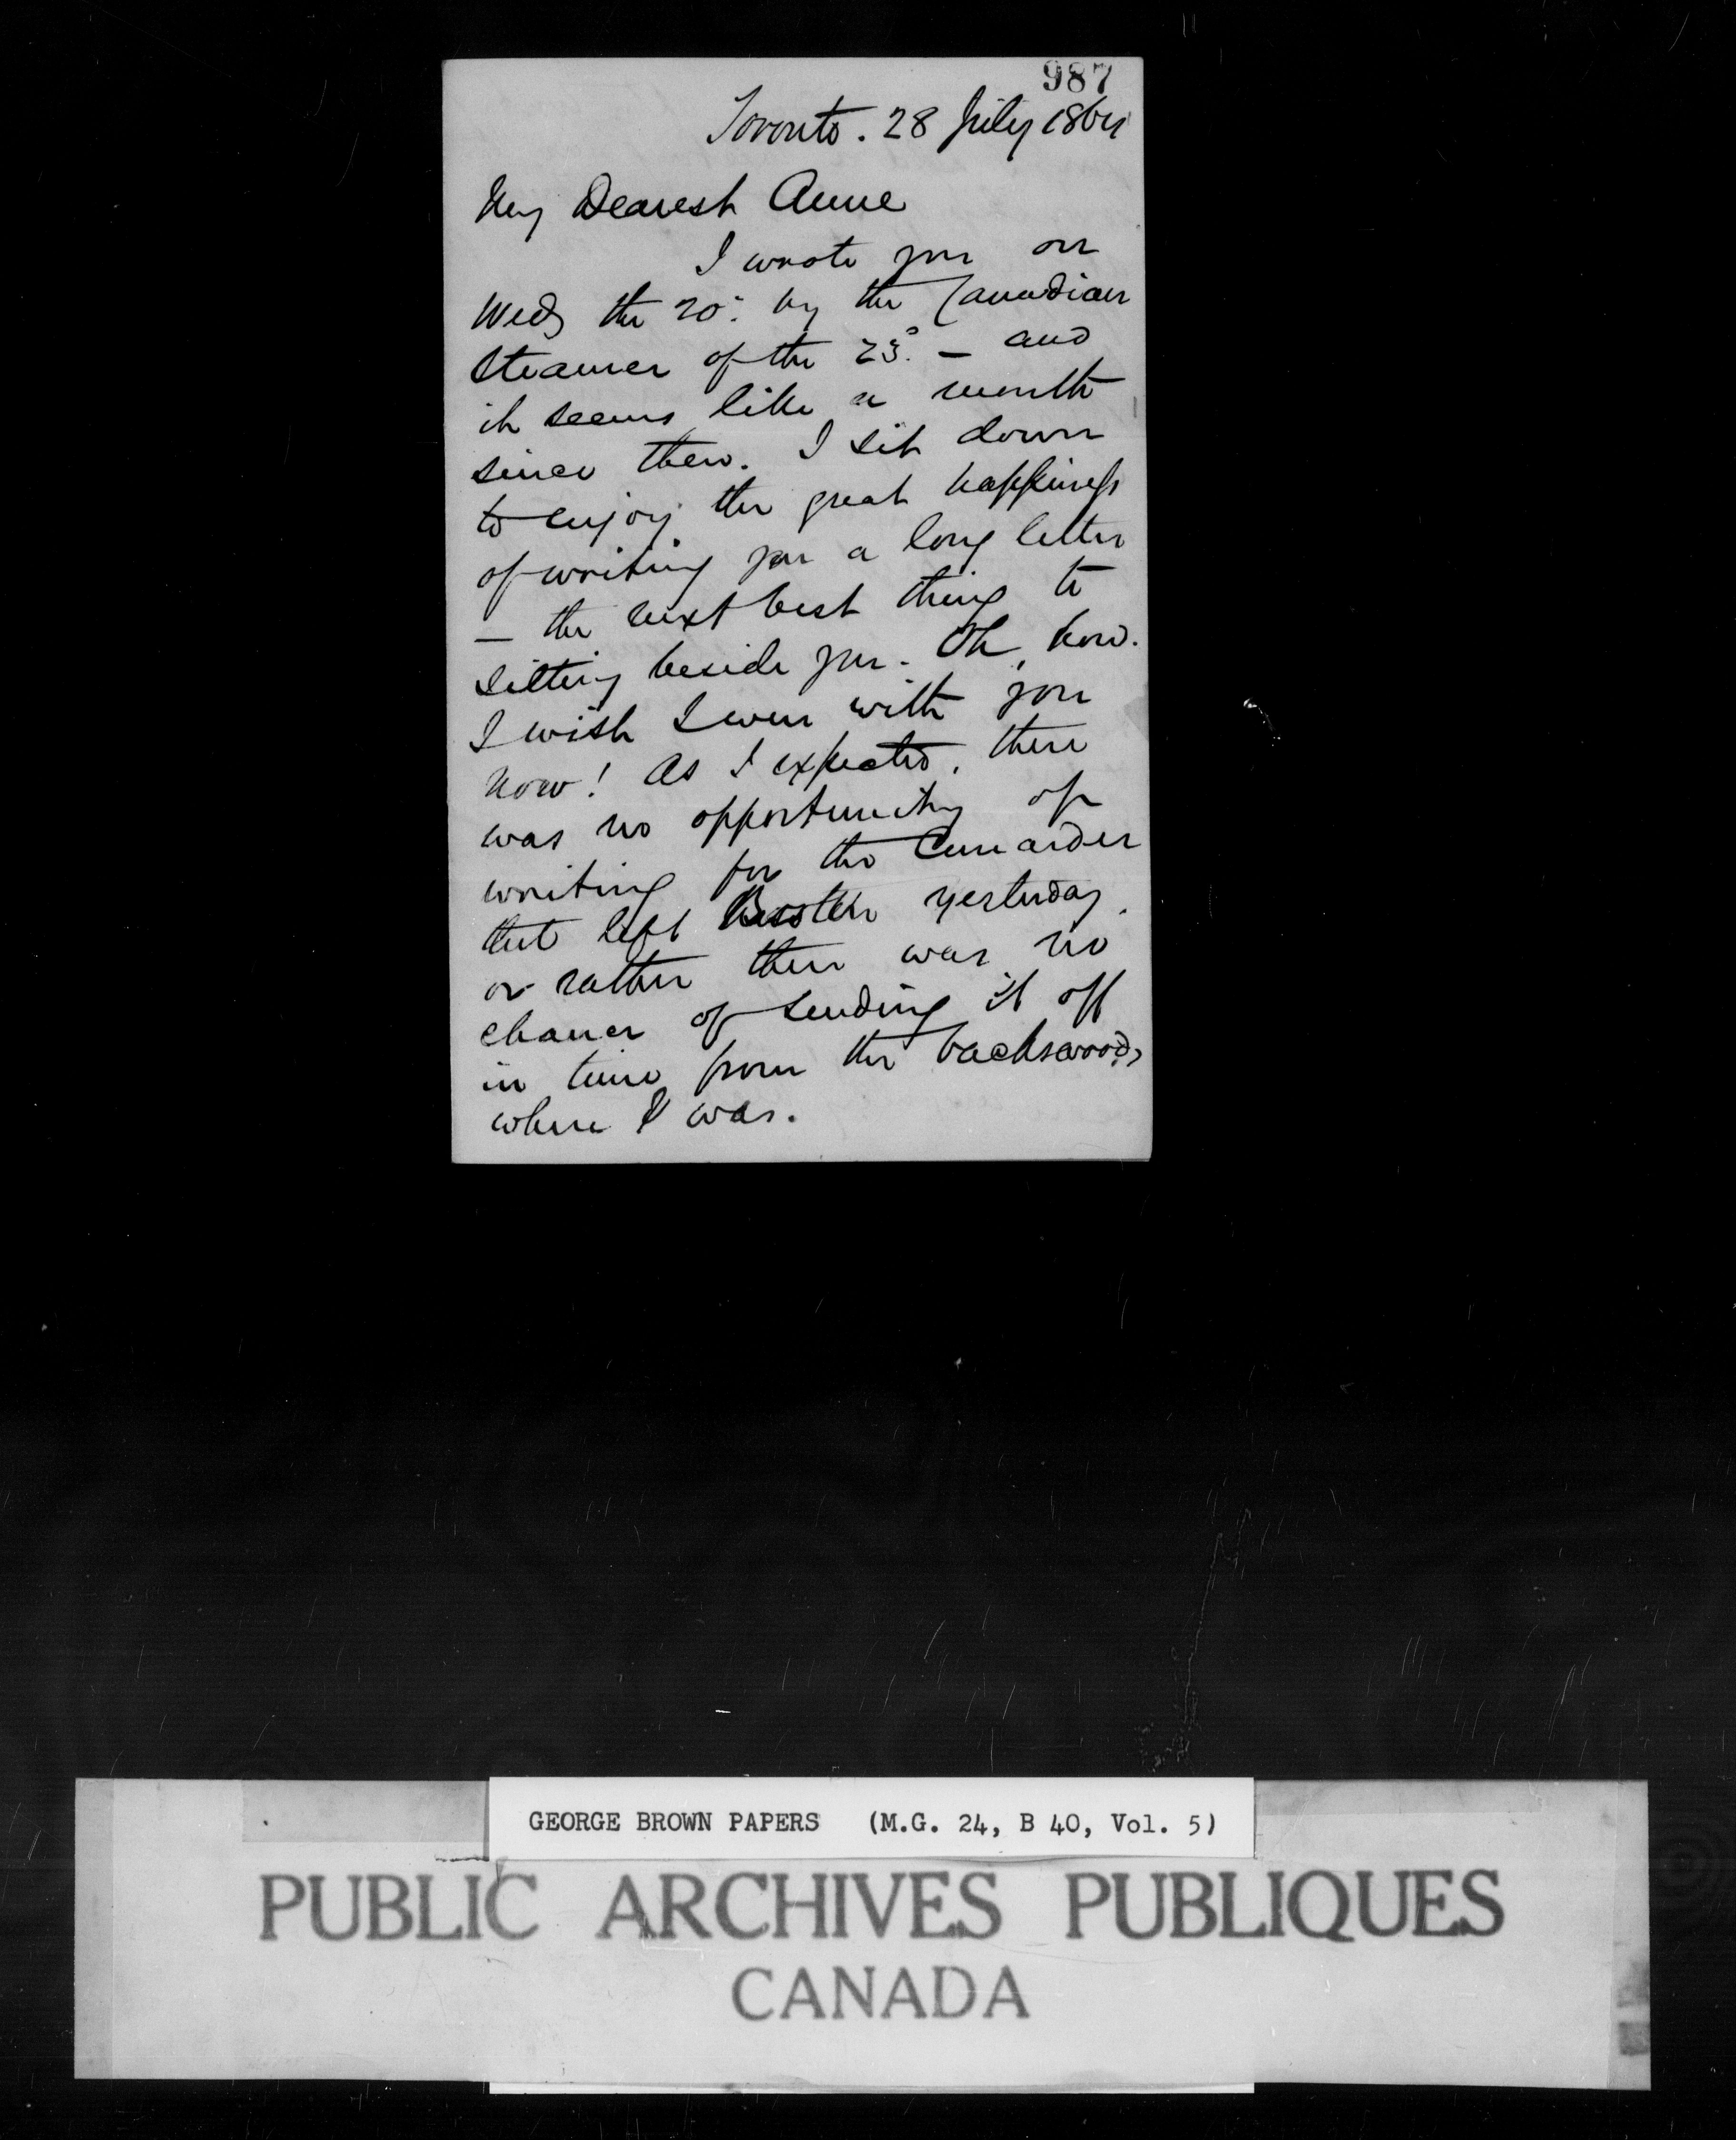 987
Toronto. 28 July 1864
My Dearest Anne
I wrote you on
Wedy the 20th by the Canadian
Steamer of the 23d. — and
it seems like a month
since then. I sit down
to enjoy the great happiness
of writing you a long letter
— the next best thing to
sitting beside you. Oh, how
I wish I were with you
now! As I expected, there
was no opportunity of
writing for the Cunarder
that left Boston yesterday,
or rather there was no
chance of sending it off
in time from the backswoods
where I was.
GEORGE BROWN PAPERS (M.G. 24, B 40, Vol. 5)
PUBLIC ARCHIVES PUBLIQUES
CANADA